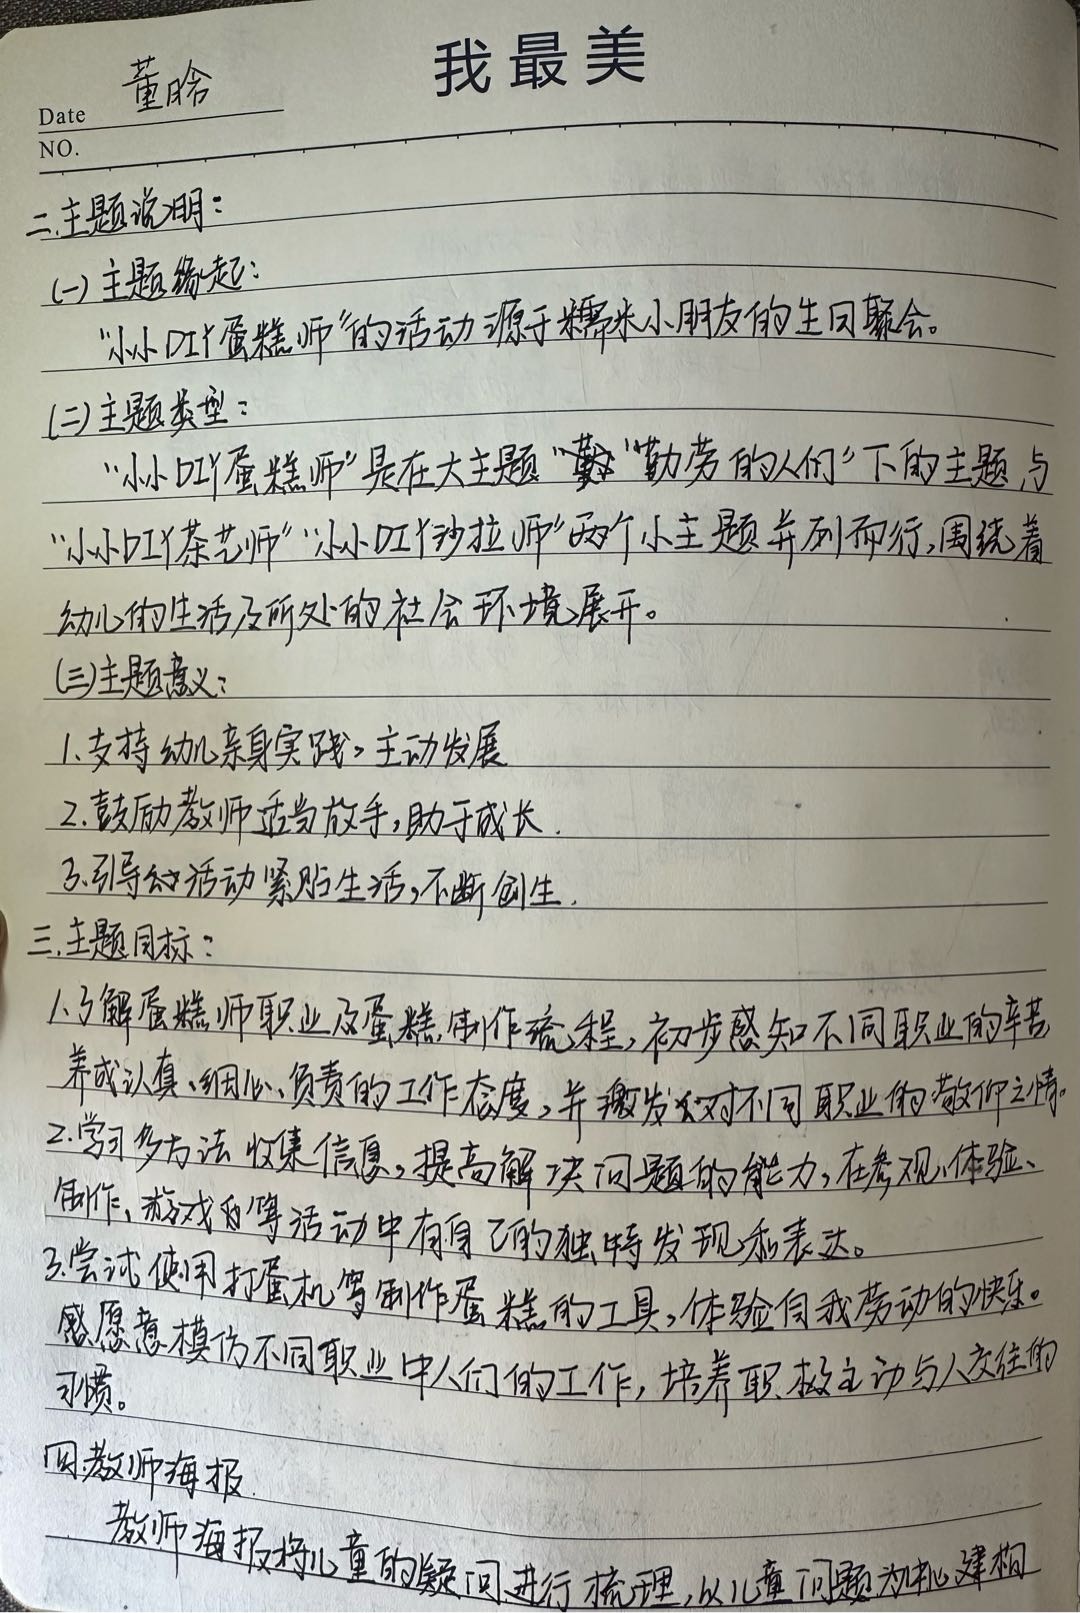 我最美
董晗
Date
NO.
二.主题说明：
(一)主题缘起：
“小小DIY蛋糕师”的活动源于糯米小朋友的生日聚会。
(二)主题类型：
“小小DIY蛋糕师”是在大主题“勤劳的人们”下的主题,与
“小小DIY茶艺师”“小小DIY沙拉师”两个小主题并列而行,围绕着
幼儿的生活及所处的社会环境展开。
(三)主题意义：
1.支持幼儿亲身实践,主动发展
2.鼓励教师适当放手,助于成长.
3.引导活动紧贴生活,不断创生.
三.主题目标：
1.了解蛋糕师职业及蛋糕制作流程,初步感知不同职业的辛苦
养成认真、细心、负责的工作态度,并激发对不同职业的敬仰之情。
2.学习多方法收集信息,提高解决问题的能力,在参观、体验、
制作、游戏等活动中有自己的独特发现和表达。
3.尝试使用打蛋机等制作蛋糕的工具,体验自我劳动的快乐。
感愿意模仿不同职业中人们的工作,培养积极主动与人交往的
习惯。
四.教师海报.
教师海报将儿童的疑问进行梳理,以儿童问题为中心建构